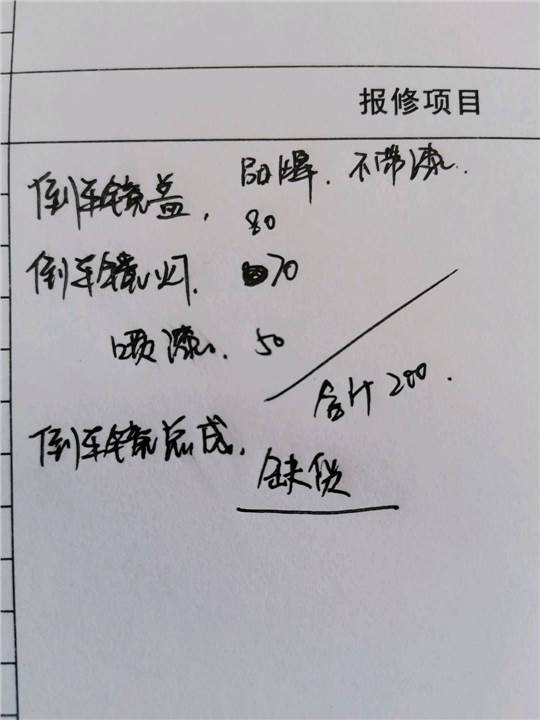 报修项目
倒车镜盖. 品牌. 不带漆.
80
倒车镜灯. 70
喷漆. 50
合计200.
倒车镜总成.
缺货